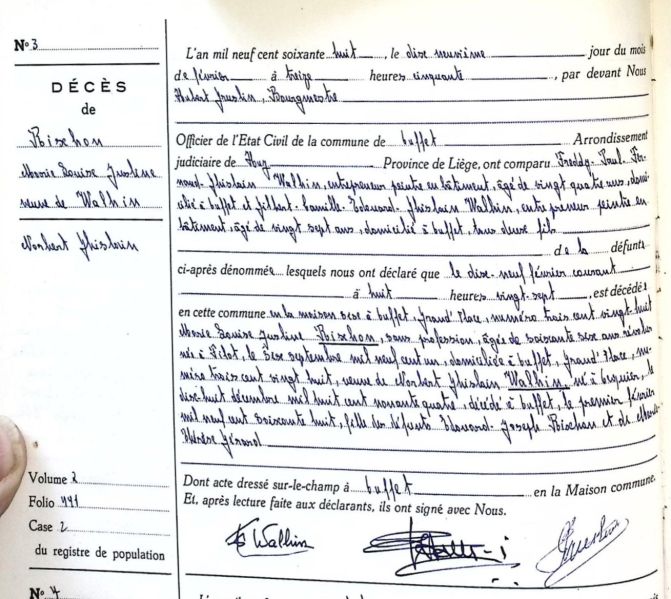 No 3
DÉCÈS
de
Bischon
Marie Louise Justine
veuve de Walhin
Norbert Ghislain
Volume 2
Folio 191
Case 2
du registre de population
No 4
L'an mil neuf cent soixante huit, le dix neuvième jour du mois
de février à treize heures cinquante, par devant Nous
Hubert, Bourgmestre
Officier de l'Etat Civil de la commune de Arrondissement
judiciaire de Huy Province de Liège, ont comparu Freddy Paul Fer-
nand Ghislain Walhin, entrepreneur peintre en bâtiment, âgé de vingt quatre ans, domi-
cilié à et Gilbert Camille Edouard Ghislain Walhin, entrepreneur peintre en
bâtiment, âgé de vingt sept ans, domicilié à, tous deux fils
de la défunte
ci-après dénommée lesquels nous ont déclaré que le dix-neuf février courant
à huit heures vingt-sept, est décédée
en cette commune en la maison sise à, Grand'Place, numéro trois cent vingt huit
Marie Louise Justine Bischon, sans profession, âgée de soixante six ans révolus
née à, le septembre mil neuf cent un, domiciliée à, Grand'Place, nu-
méro trois cent vingt huit, veuve de Norbert Ghislain Walhin né à, le
dix huit décembre mil huit cent nonante quatre, décédé à, le premier février
mil neuf cent soixante huit, fille des défunts Edouard Joseph Bischon et de Marie
Thérèse Gérard
Dont acte dressé sur-le-champ à en la Maison commune.
Et, après lecture faite aux déclarants, ils ont signé avec Nous.
Walhin